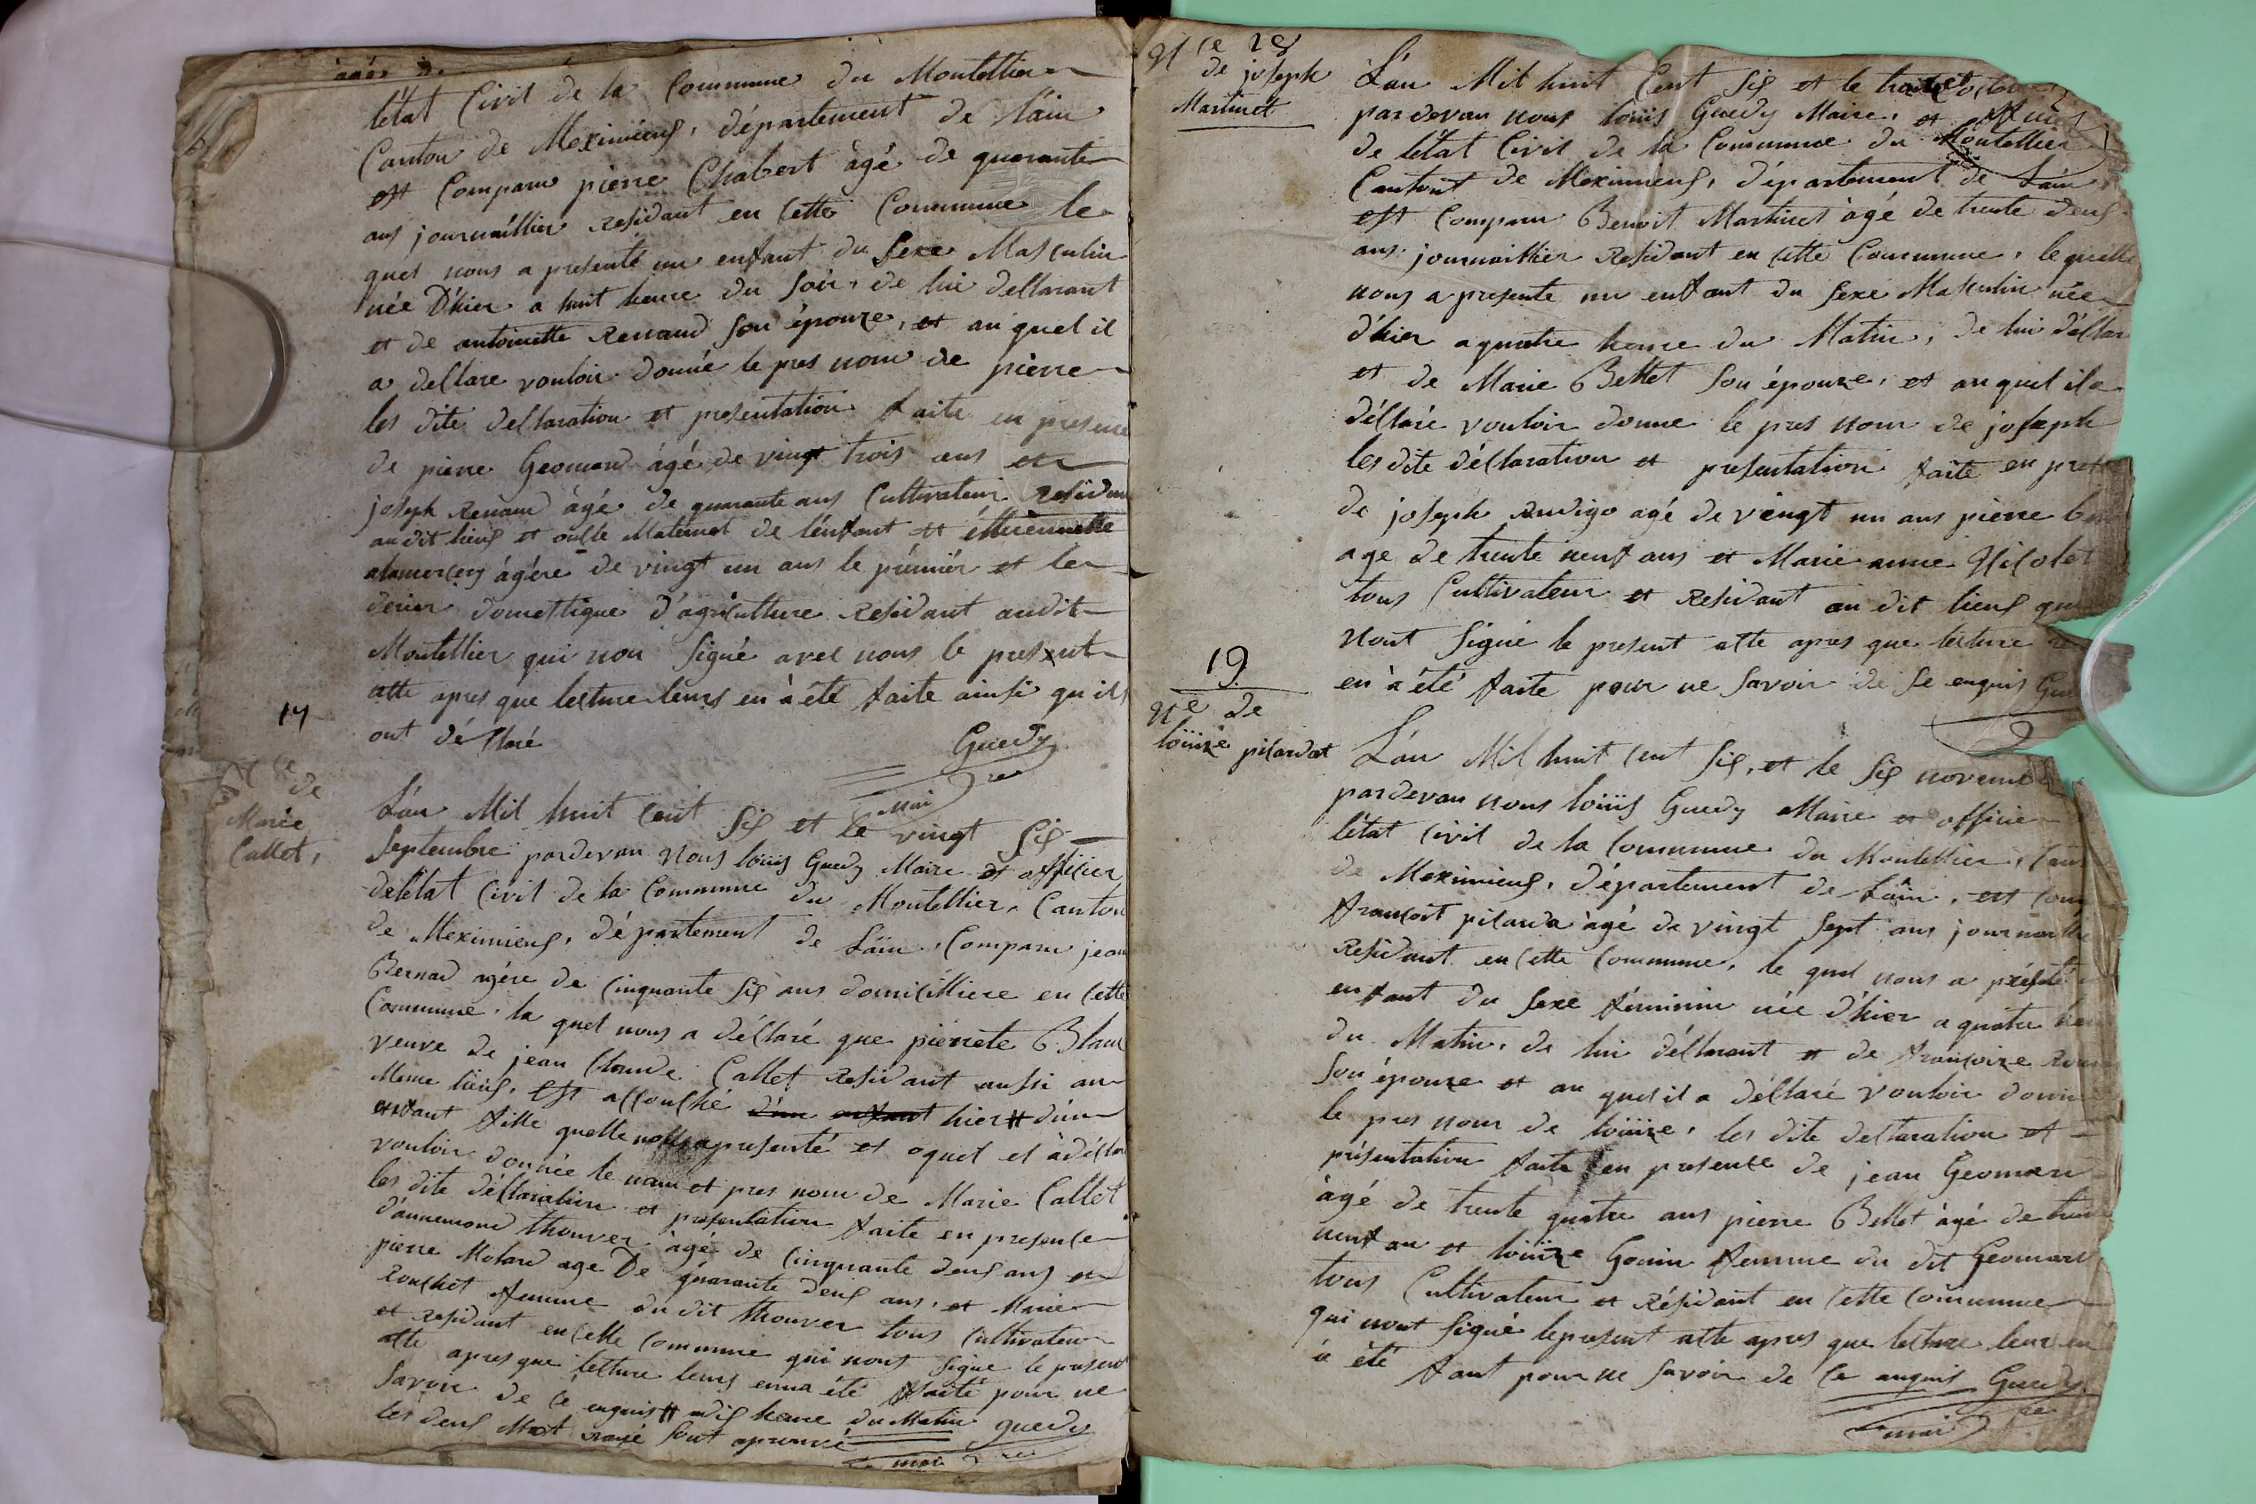 l'état Civil de la Commune du Montellier
Canton de Meximieuf, département de l'ain
est Comparu pierre Chabert àgé de quarante
ans journaillier residant en cette Commune le
quel nous a presenté un enfant du sexe Masculin
née D'hier a huit heure du soir, de lui dellarant
et de antoinette Renaud son épouze, et au quel il
a dellare vouloir donnée le pres nom de pierre
les dite dellaration et presentation faite en presence
de pierre Geomard àgé de vingt trois ans et
joseph Renaud àgé de quarante ans Cultivateur
au dit lieuf et oncle Maternel de l'enfant et
àgére de vingt un ans le prémiér et le
derier domestique d'agriculture residant audit
Montellier qui non signé avec nous le present
atte apres que lecture leurs en à été faite ainsi qu'ils
ont déclaré
Guedy
mai re
17
Nce de
Marie
Callet,
L'an Mil huit cent sif et le vingt sif
septembre pardevan Nous loüis Guedy Maire et officier
de l'état Civil de la Commune du Montellier, Canton
de Meximieuf, département de Laïn, Comparu jean
Bernard agére de cinquante sif ans domicilliere en cette
Commune, la quel nous a déclaré que pierrete Blanc
veuve de jean Claude Callet residant aussi au
Meme lieuf, est accouché d'un enfant hier # d'un
enfant fille quelle nous a presenté et oquel el à déclare
vouloir donnée le nom et pres nom de Marie Callet
les dite déclaration et presentation faite en presence
d'annemond thouver àgé de cinquante deuf ans et
pierre Molard age De quarante deuf ans, et Marie
Rouchet femme du dit thouver tous cultivateur
et residant en cette Commune qui nont signé le present
atte apres que lecture leurs enna été faite pour ne
savoir de ce enquis # adif heure du Matin guedy
les deuf Mot rayé sont aprouvé
mai re
Nce 18
de joseph
Martinet
L'an Mil huit Cent sif et le
pardevan nous loüis Guedy Maire, et
de l'état Civil de la Commune du Montellier
Cantont de Meximieuf, département de Laïn,
est comparu Benoit Martinet àgé de trente deuf
ans journaillier residant en cette Commune, le quelle
nous a presente un enfant du sexe Masculin née
d'hier a quatre heure du Matin, de lui déllar
et de Marie Bettet son épouze, et au quel il a
déllaré vouloir donne le pres nom de joseph
les dite déclaration et presentation faite en pres
de joseph Rudigo agé de vingt un ans pierre
age de trente neuf ans et Marie anne Nicolet
tous Cultivateur et residant au dit lieuf qui
Nont signié le present atte apres que lecture
en à été faite pour ne savoir de se enquis Gue
19
Nce de
loüize pilardat
L'an Mil huit cent sif, et le sif novem
pardevan nous loüis Guedy Maire et officie
l'état civil de la Commune du Montellier, Can
de Meximieuf, département de Laïn, est com
francort pilarda àgé de vingt sept ans journaillie
residant en cette Commune, le quel nous a présenté
enfant du sexe féminin née d'hier a quatre heu
du Matin, de lui déllarant et de francoize
son épouze et au quel il a déllaré vouloir donn
le pres nom de loüize, les dite dellaration et
présentation faite en presence de jean Geomard
àgé de trente quatre ans pierre Bettet àgé de trente
neuf an et loüize Gonin femme du dit Geomard
tous Cultivateur et résidant en cette Commune
qui nont signé le present atte apres que lecture leur en
à été fait pour ne savoir de ce anquis Guedy
mai re